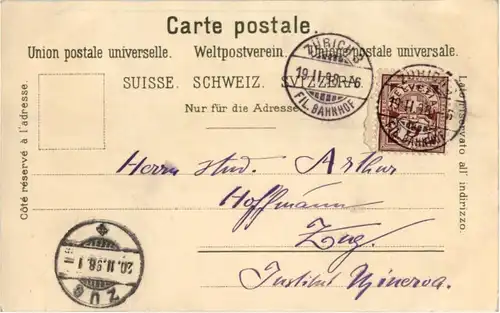 Carte postale.
Union postale universelle. Weltpostverein. Unione postale universale.
SUISSE. SCHWEIZ. SVIZZERA.
Nur für die Adresse.
Côté réservé à l'adresse.
Lato riservato all' indirizzo.
ZÜRICH
19.II.98.
FIL. BAHNHOF
ZÜRICH
19.II.98
FIL. BAHNHOF
HELVETIA
Herrn stud. Arthur
Hoffmann
Zug.
Institut Minerva.
20.II.98.
ZUG